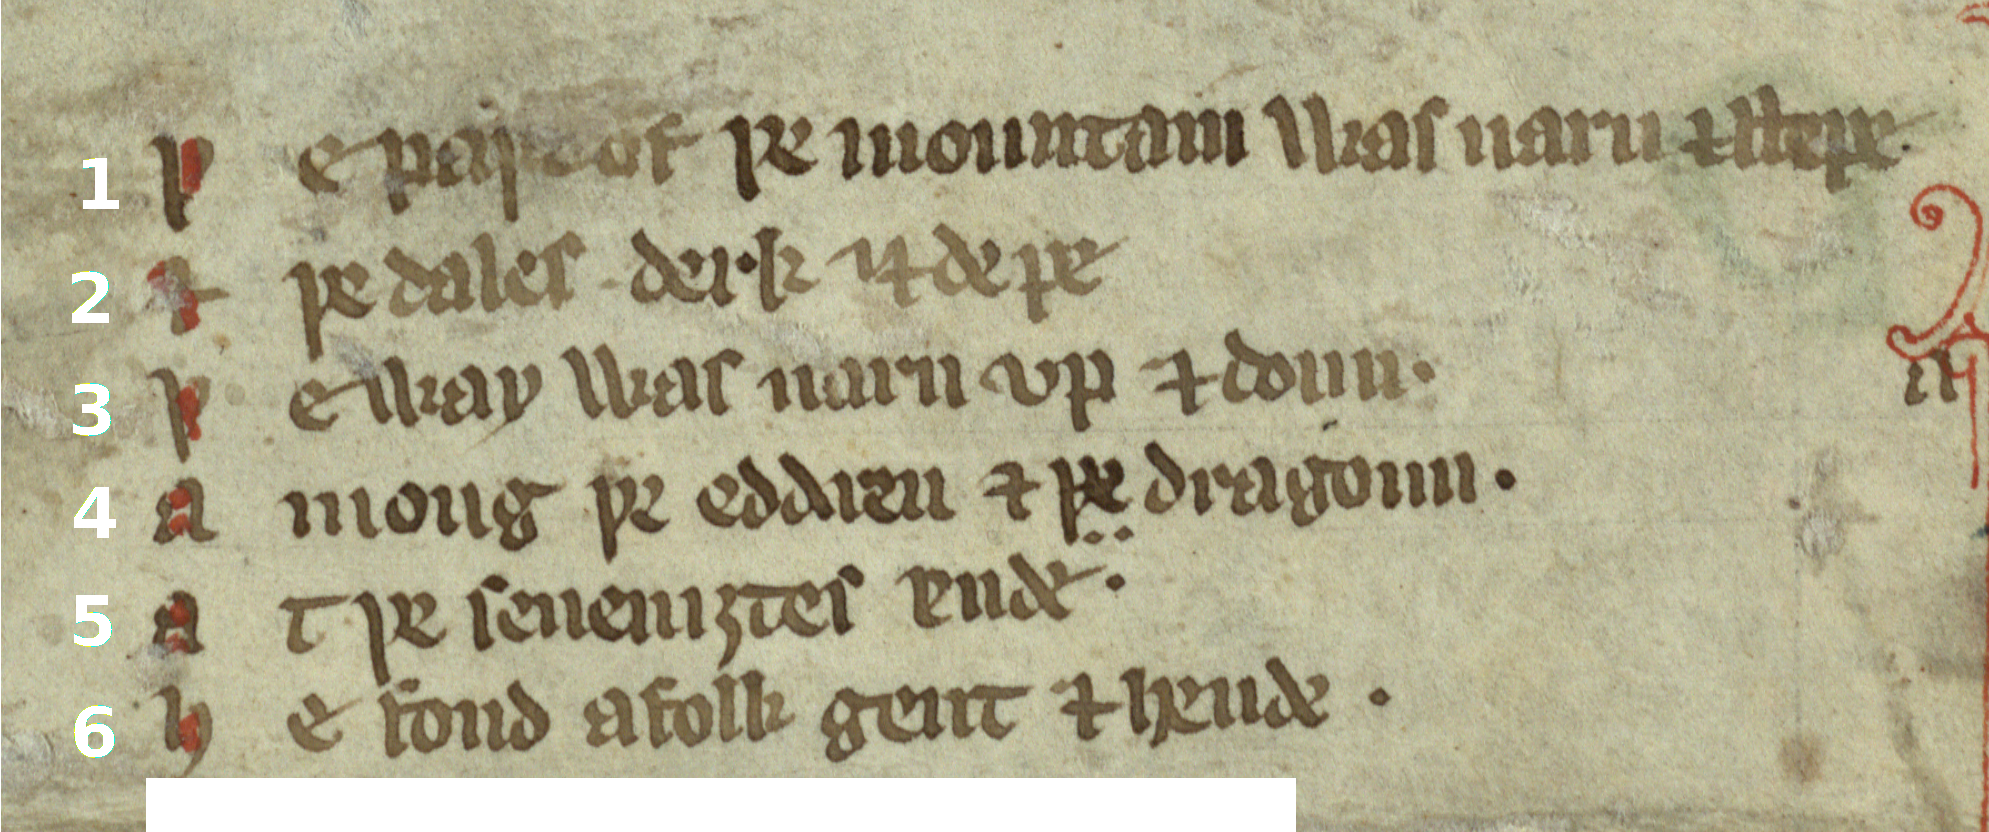 1 þe pas of þe mountain was naru ⁊ stepe
2 ⁊ þe dales derk ⁊ depe
3 þe way was naru vp ⁊ doun.
4 among þe eddren ⁊ þe dragoun.
5 at þe seueniȝtes ende.
6 he fond a folk gent ⁊ hende.